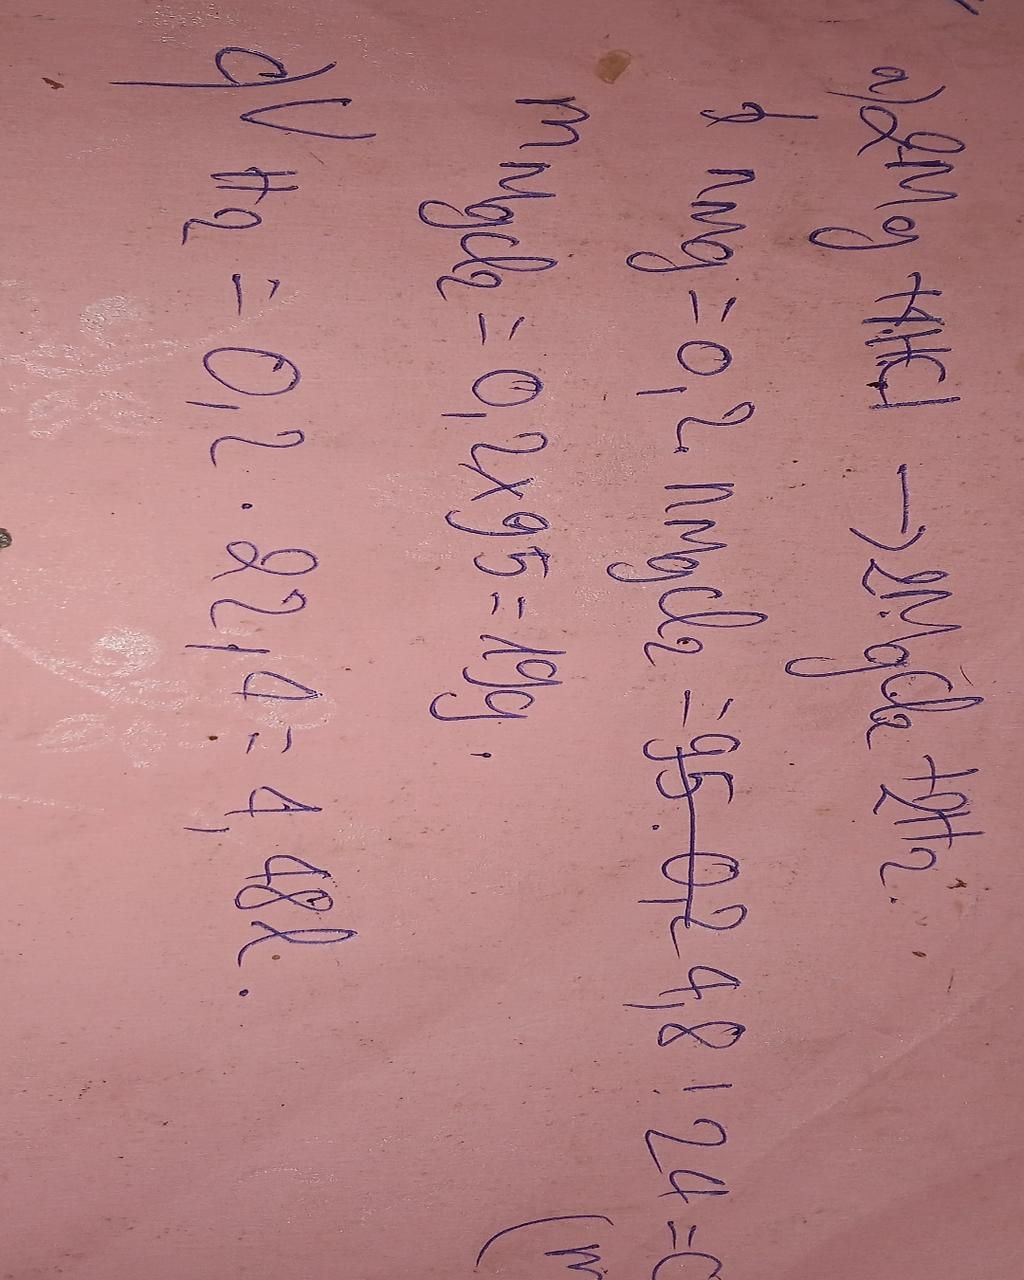 a) 2Mg + 4HCl → 2MgCl2 + 2H2.
nMg = 0,2. nMgCl2 = 4,8 : 24 =
(m
mMgCl2 = 0,2 x 95 = 19g.
VH2 = 0,2 . 22,4 = 4,48l.